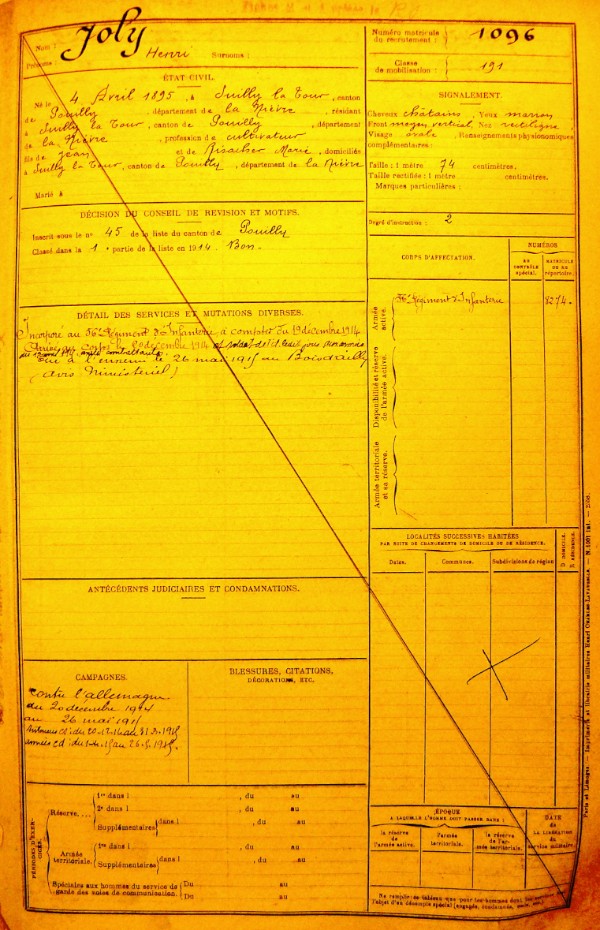 Nom : Joly
Prénoms : Henri Surnoms :
ÉTAT CIVIL.
Né le 4 Avril 1895, à Suilly la Tour, canton
de Pouilly, département de la Nièvre, résidant
à Suilly la Tour, canton de Pouilly, département
de la Nièvre, profession de cultivateur
fils de Jean et de Marie, domiciliés
à Suilly la Tour, canton de Pouilly, département de la Nièvre
Marié à
DÉCISION DU CONSEIL DE REVISION ET MOTIFS.
Inscrit sous le n° 45 de la liste du canton de Pouilly
Classé dans la 1e partie de la liste en 1914. Bon.
DÉTAIL DES SERVICES ET MUTATIONS DIVERSES.
Incorporé au 56e Régiment d'Infanterie à compter du 19 décembre 1914
Arrivé au corps le 20 décembre 1914 et soldat de 2e cl.
Tué à l'ennemi le 26 mai 1915 au Bois d'Ailly
(Avis Ministériel)
ANTÉCÉDENTS JUDICIAIRES ET CONDAMNATIONS.
CAMPAGNES.
Contre l'allemagne
du 20 décembre 1914
au 26 mai 1915
BLESSURES, CITATIONS,
DÉCORATIONS, ETC.
PÉRIODES D'EXERCICES.
Réserve....
1re dans l , du au
2e dans l , du au
Supplémentaires dans l , du au
Armée territoriale.
1re dans l , du au
Supplémentaires dans l , du au
Spéciales aux hommes du service de garde des voies de communication.
Du au
Du au
Numéro matricule
du recrutement : 1096
Classe
de mobilisation : 191
SIGNALEMENT.
Cheveux châtains Yeux marron
Front moyen, vertical, Nez rectiligne
Visage ovale, Renseignements physionomiques
complémentaires :
Taille : 1 mètre 74 centimètres.
Taille rectifiée : 1 mètre centimètres.
Marques particulières :
Degré d'instruction : 2
CORPS D'AFFECTATION.
NUMÉROS
AU CONTRÔLE SPÉCIAL.
MATRICULE OU AU RÉPERTOIRE.
Armée active.
56e Régiment d'Infanterie 8274
Disponibilité et réserve de l'armée active.
Armée territoriale et sa réserve.
LOCALITÉS SUCCESSIVES HABITÉES
PAR SUITE DE CHANGEMENTS DE DOMICILE OU DE RÉSIDENCE.
Dates. Communes. Subdivisions de région
D DOMICILE. R RÉSIDENCE.
ÉPOQUE
À LAQUELLE L'HOMME DOIT PASSER DANS :
la réserve de l'armée active.
l'armée territoriale.
la réserve de l'armée territoriale.
DATE
de
LA LIBÉRATION
du
service militaire.
Ne remplir ce tableau que pour les hommes dont les services
l'objet d'un décompte spécial (engagés, condamnés, omis, etc.)
Paris et Limoges. — Imprimerie et librairie militaires Henri Charles-Lavauzelle.